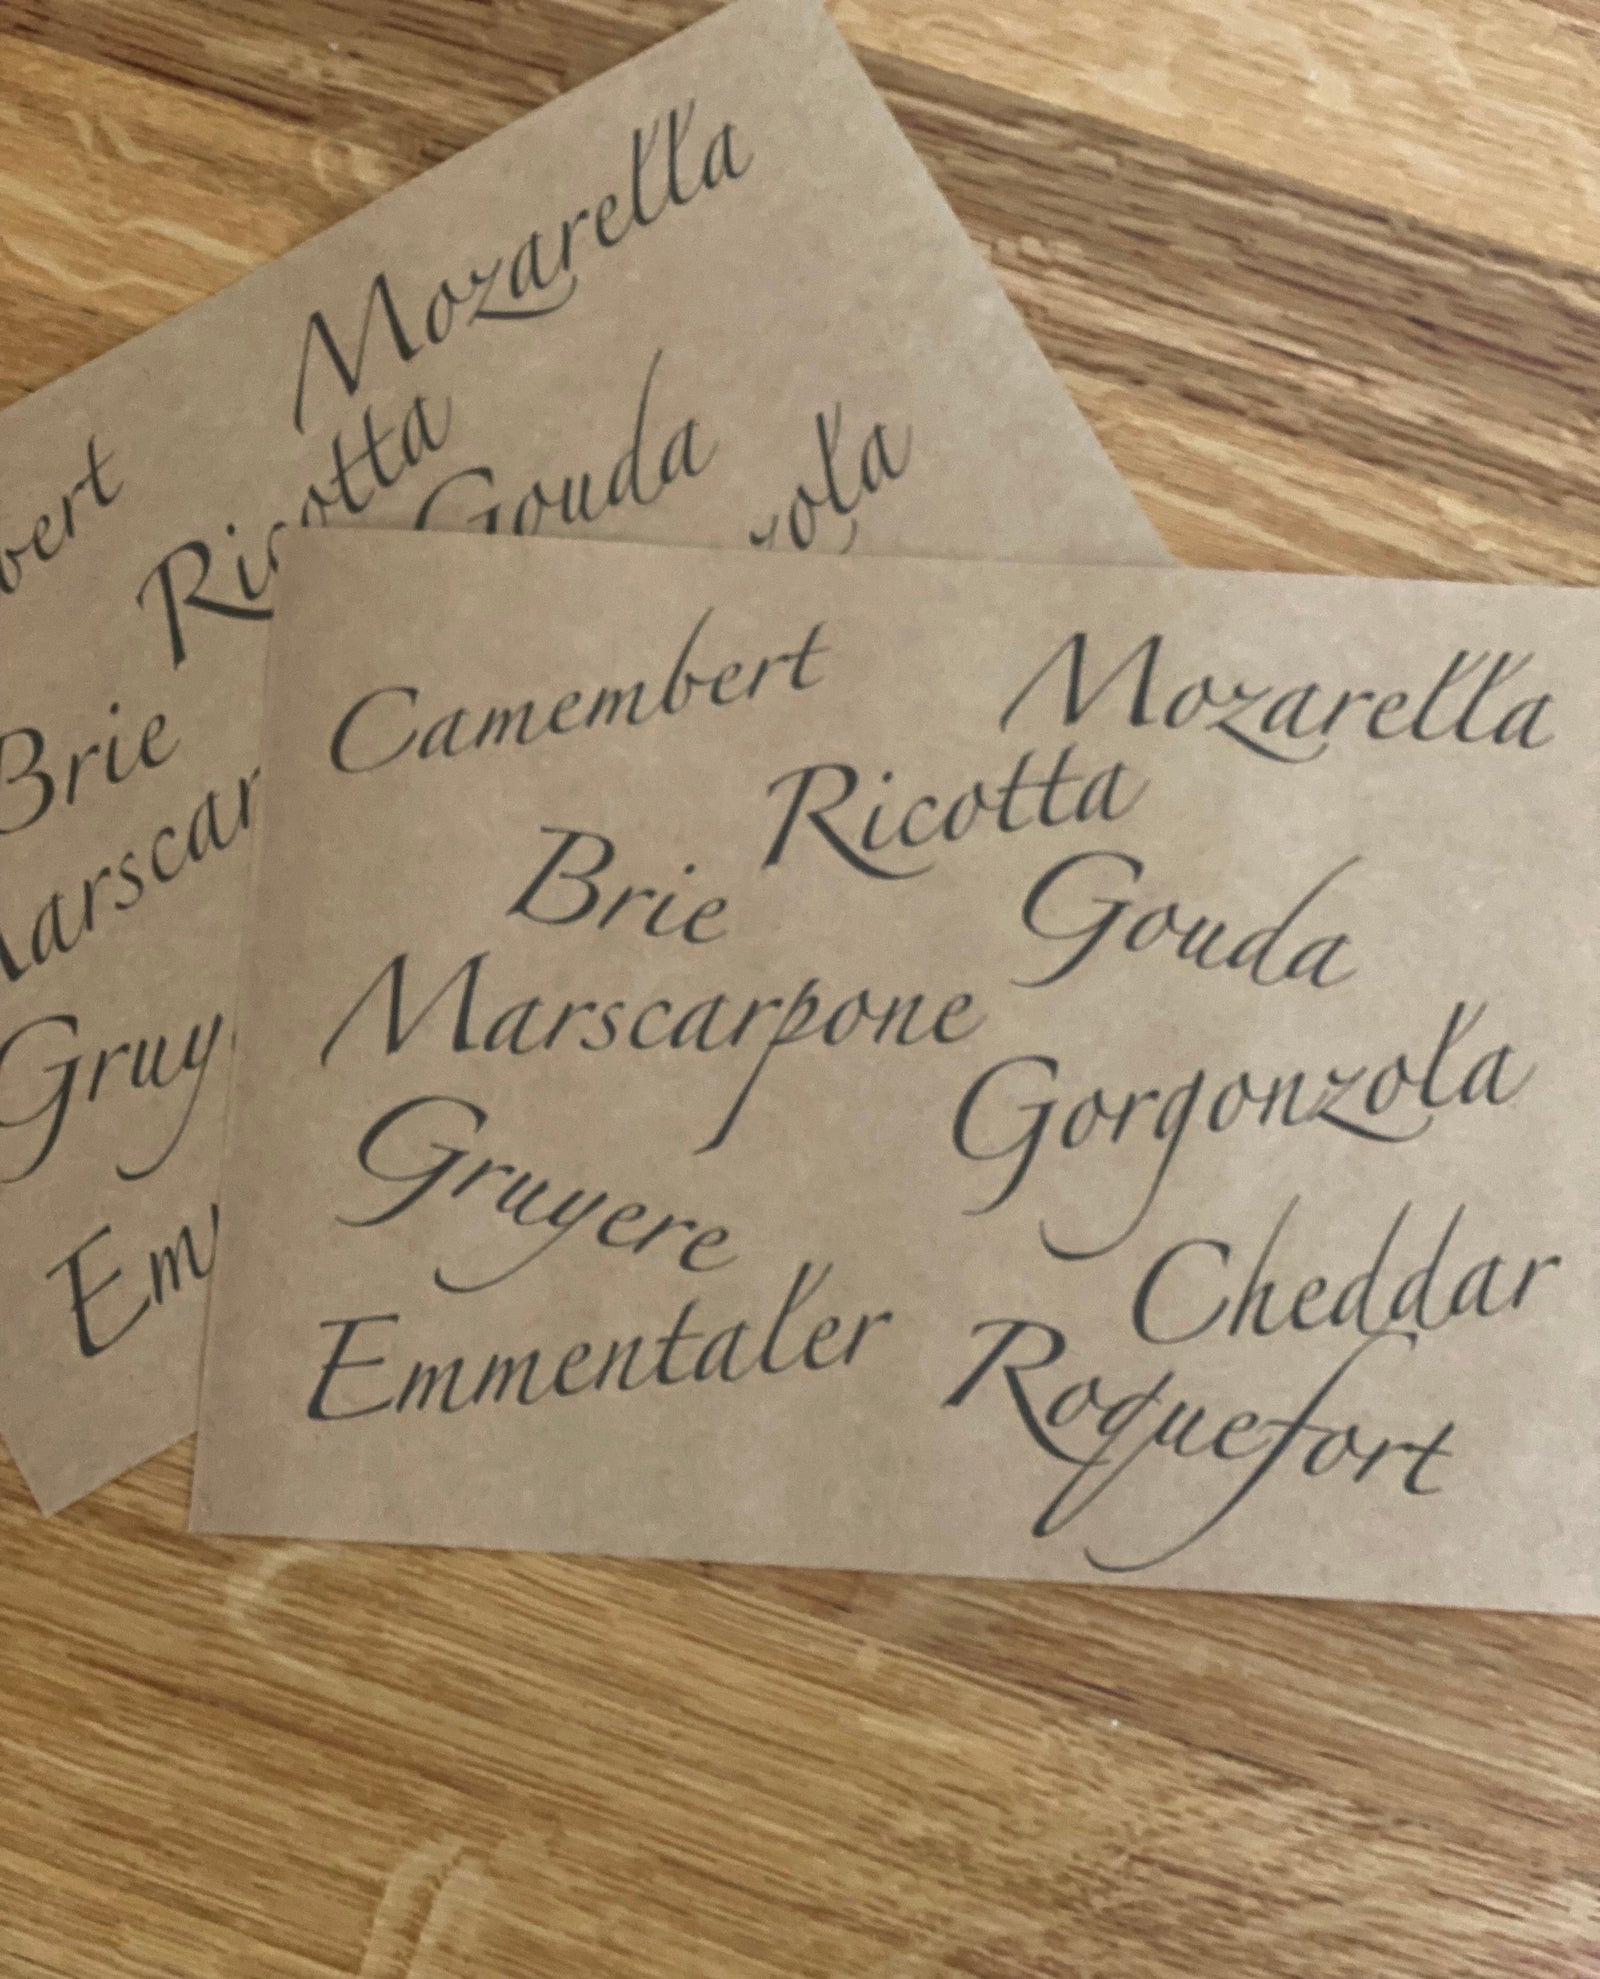 Mozarella
Ricotta
Gouda
Brie
Camembert
Mozarella
Ricotta
Brie
Gouda
Marscarpone
Gorgonzola
Gruyere
Cheddar
Emmentaler
Roquefort